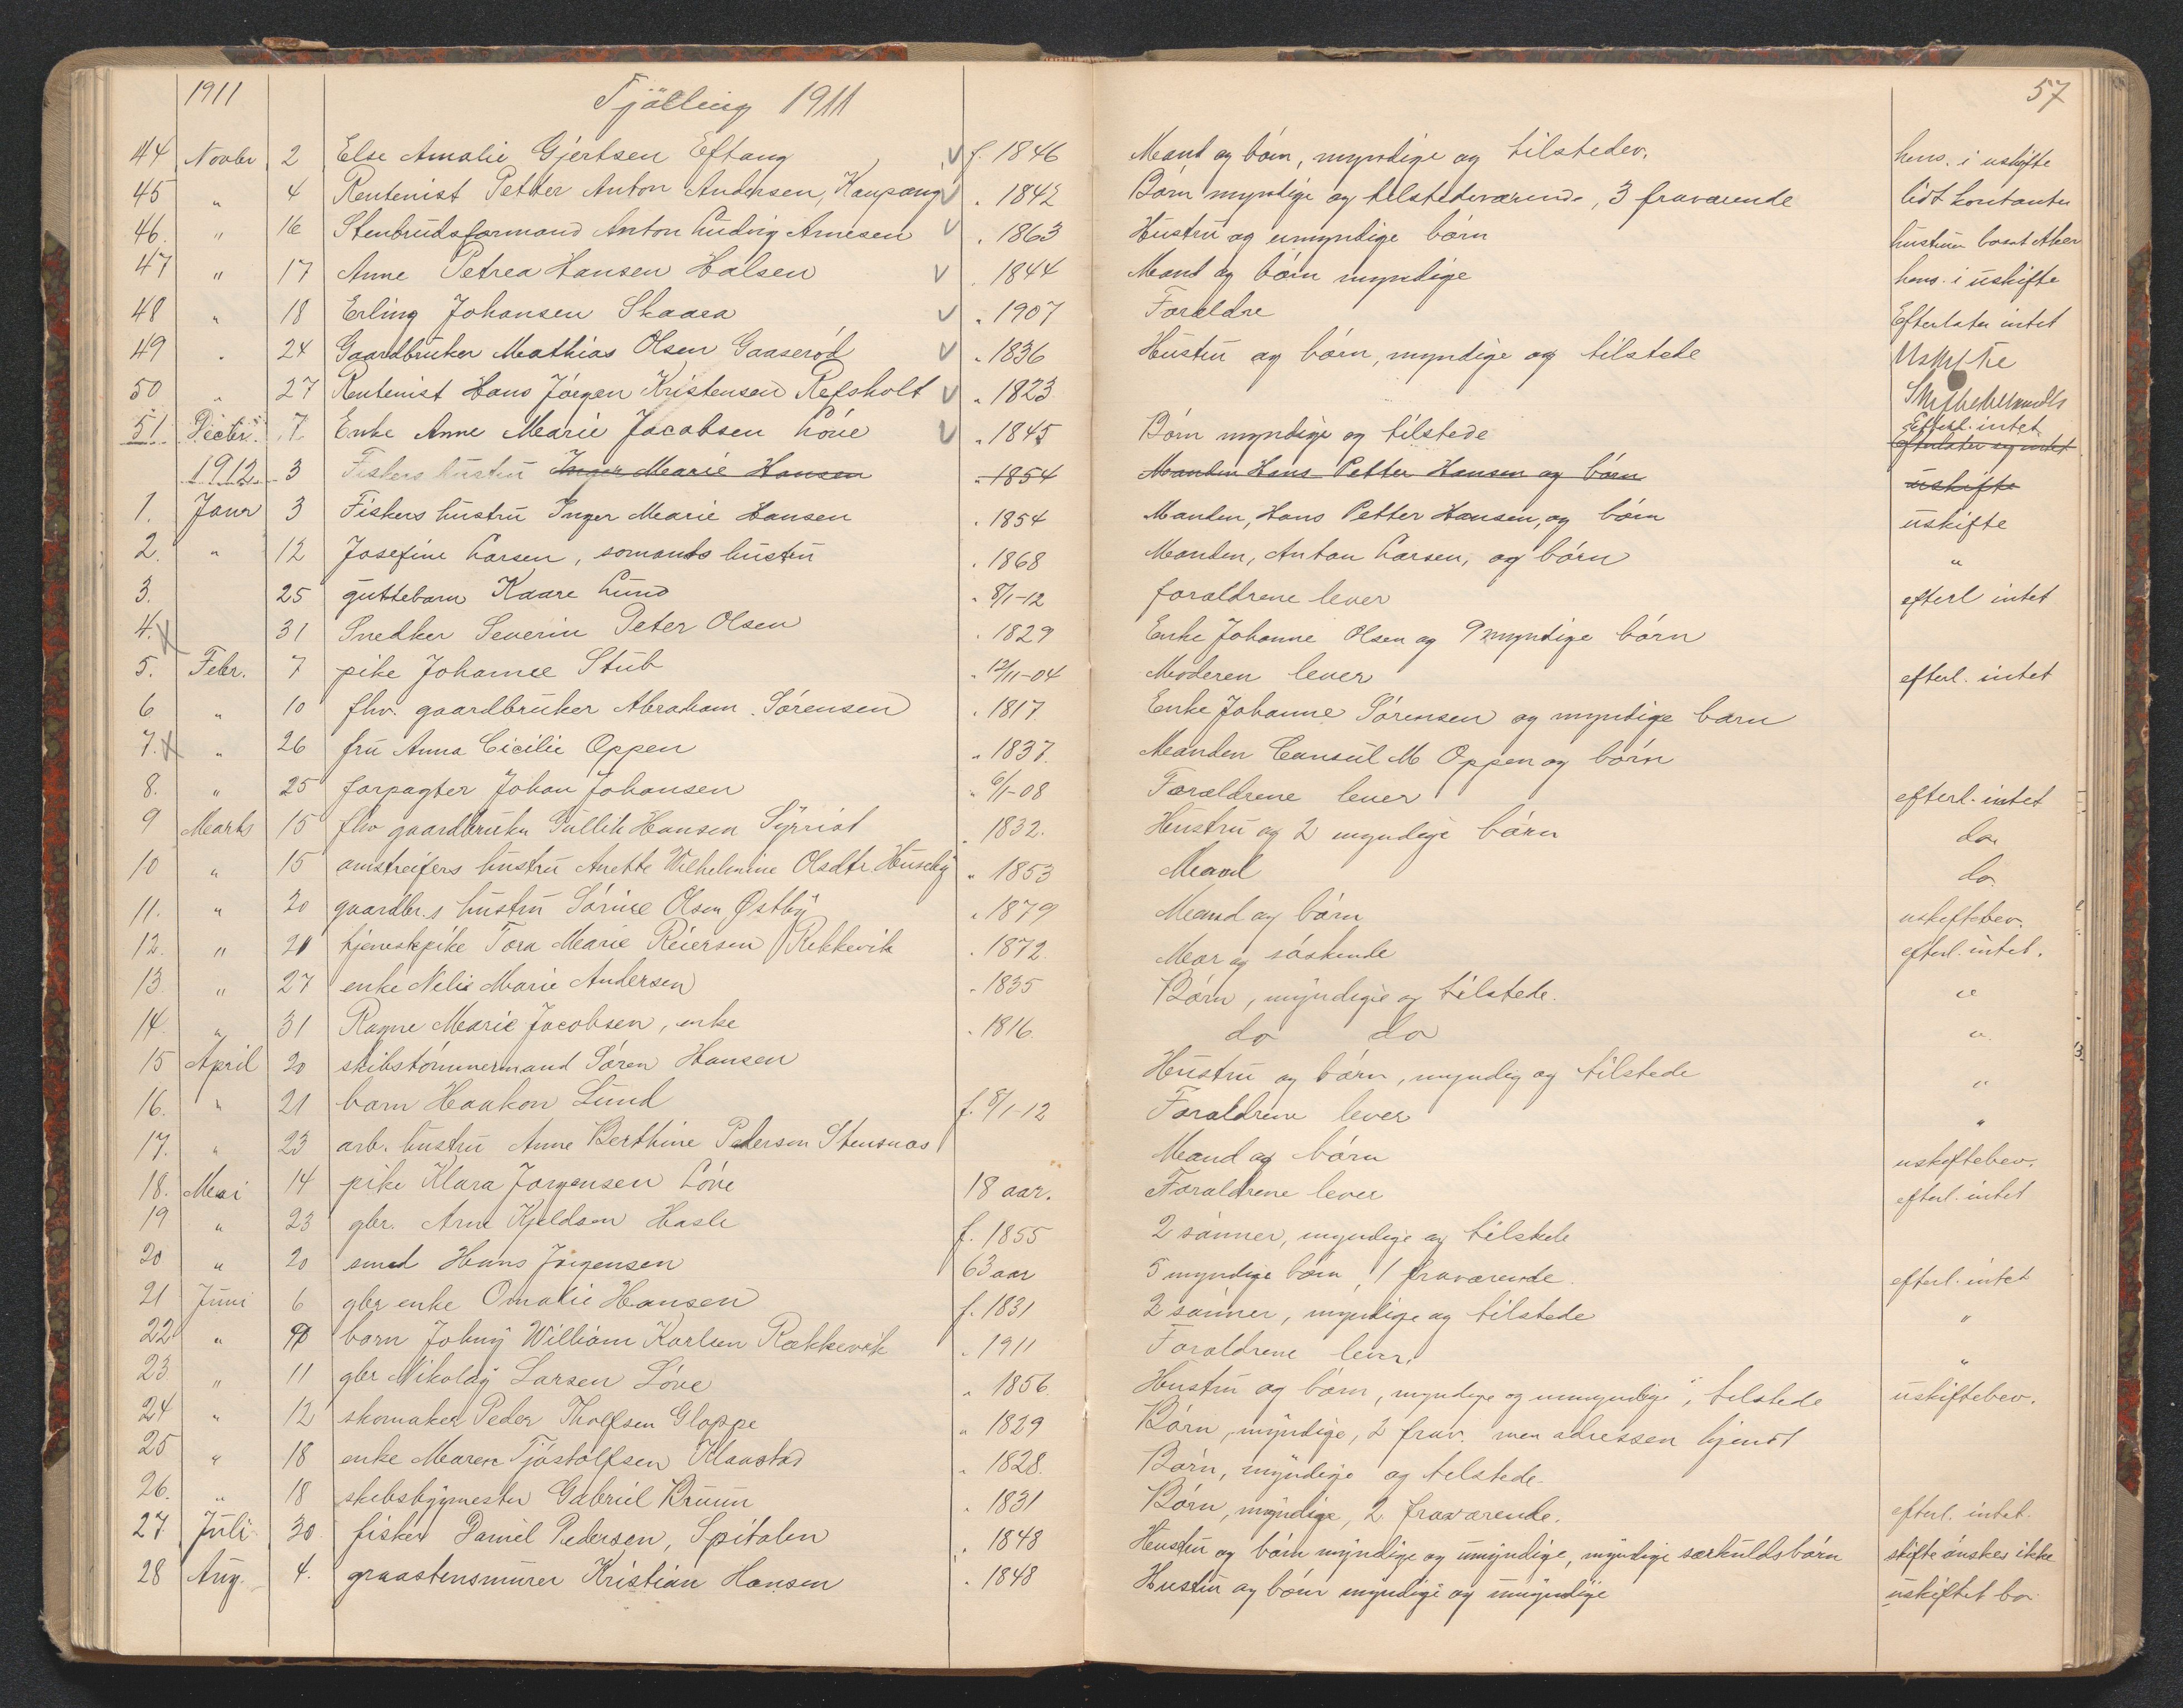 1911 Tjölling 1911 57
44 Novbr 2 Else Amalie Gjertsen Eftang f. 1846 Mand og börn, myndige og tilstedev. hens. i uskifte
45 " 4 Rentenist Petter Anton Andersen, Kaupang " 1842 Börn myndige og tilstedeværende, 3 fraværende lidt kontanter
46. " 16 Stenbrudsformand Anton Ludvig Arnesen " 1863 Hustru og umyndige börn hustruen bosat Aker
47 " 17 Anne Petrea Hansen Halsen " 1844 Mand og börn myndige hens. i uskifte
48 " 18 Erling Johansen Skaara " 1907 Forældre Efterlater intet
49 " 24 Gaardbruker Mathias Olsen Gaaseröd " 1836 Hustru og börn, myndige og tilstede Uskifte
50 " 27 Rentenist Hans Jörgen Kristensen Refsholt " 1823
51 Decbr. 7 Enke Anne Marie Jacobsen Löve " 1845 Börn myndige og tilstede Efterl. intet
1912 3 Fiskers hustru Inger Marie Hansen " 1854 Manden Hans Petter Hansen og börn uskifte
1. Januar 3 Fiskers hustru Inger Marie Hansen " 1854 Manden, Hans Petter Hansen, og börn uskifte
2. " 12 Josefine Larsen, sömands hustru " 1868 Manden, Anton Larsen, og börn "
3. 25 guttebarn Kaare Lund " 8/1-12 forældrene lever efterl intet
4. X 31 Snedker Severin Peter Olsen " 1829 Enke Johanne Olsen og 9 myndige börn
5. Febr. 7 pike Johanne Stub " 12/11-04 Moderen lever efterl. intet
6 " 10 fhv. gaardbruker Abraham Sörensen " 1817 Enke Johanne Sörensen og myndige barn
7. X " 26 fru Anna Cicilie Oppen " 1837. Manden Consul M Oppen og börn
8. " 25 forpagter Johan Johansen " 6/1-08 Forældrene lever efterl. intet
9 Marts 15 fhv gaardbruker Gullik Hansen Syrrist " 1832. Hustru og 2 myndige börn do
10 " 15 omstreifers hustru Anette Wilhelmine Olsdtr. Huseby " 1853 Mand do
11. " 20 gaardbr.s hustru Sörine Olsen Østby " 1879 Mand og börn uskiftebev.
12. " 21 tjenestepike Tora Marie Reiersen Rekkevik " 1872. Mor og söskende efterl. intet.
13 " 27 enke Nelie Marie Andersen " 1835 Börn, myndige og tilstede. "
14. " 31 Ragne Marie Jacobsen, enke " 1816 do do "
15 April 20 skibstömmermand Sören Hansen Hustru og börn, myndig og tilstede "
16. " 21 barn Haakon Lund f. 8/1-12 Forældrene lever "
17. " 23 arb. hustru Anne Berthine Pedersen Stensnæs Mand og börn uskiftebev.
18. Mai 14 pike Klara Jorgensen Löve 18 aar. Forældrene lever efterl. intet
19 " 23 gbr. Arne Kjeldsen Hasle f. 1855 2 sönner, myndige og tilstede
20 " 20 smed Hans Jörgensen 63 aar 5 myndige börn, 1 fraværende. efterl. intet
21 Juni 6 gbr enke Omalie Hansen f. 1831 2 sönner, myndige og tilstede "
22 " barn Johny William Karlsen Rækkevik " 1911 Forældrene lever. "
23 " 11 gbr Nikolay Larsen Löve " 1856. Hustru og börn, myndige og umyndige, tilstede uskiftebev.
24 " 12 skomaker Peder Tholfsen Gloppe " 1829 Börn, myndige, 2 frav. men adressen kjendt
25 " 18 enke Maren Tjöstolfsen Klaastad " 1828. Börn, myndige og tilstede.
26. " 18 skibsbygmester Gabriel Bruun " 1831 Börn, myndige, 2 fraværende. efterl. intet.
27 Juli 30 fisker Daniel Pedersen, Spitalen " 1848 Hustru og börn myndige og umyndige, myndige særkuldsbörn skifte önskes ikke
28 Aug. 4. graastensmurer Kristian Hansen " 1848 Hustru og börn myndige og umyndige uskiftet bo